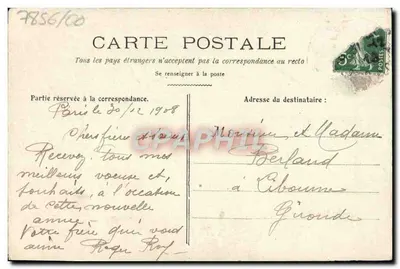 7856/60
CARTE POSTALE
Tous les pays étrangers n'acceptent pas la correspondance au recto
Se renseigner à la poste
Partie réservée à la correspondance.
Adresse du destinataire :
Paris le 30/12 1908
Recevez tous mes
meilleurs voeux et
souhaits, à l'occasion
de cette nouvelle
année.
Votre frère qui vous
aime Roger
Monsieur et Madame
Berland
à Libourne
Gironde
CPAPHIL